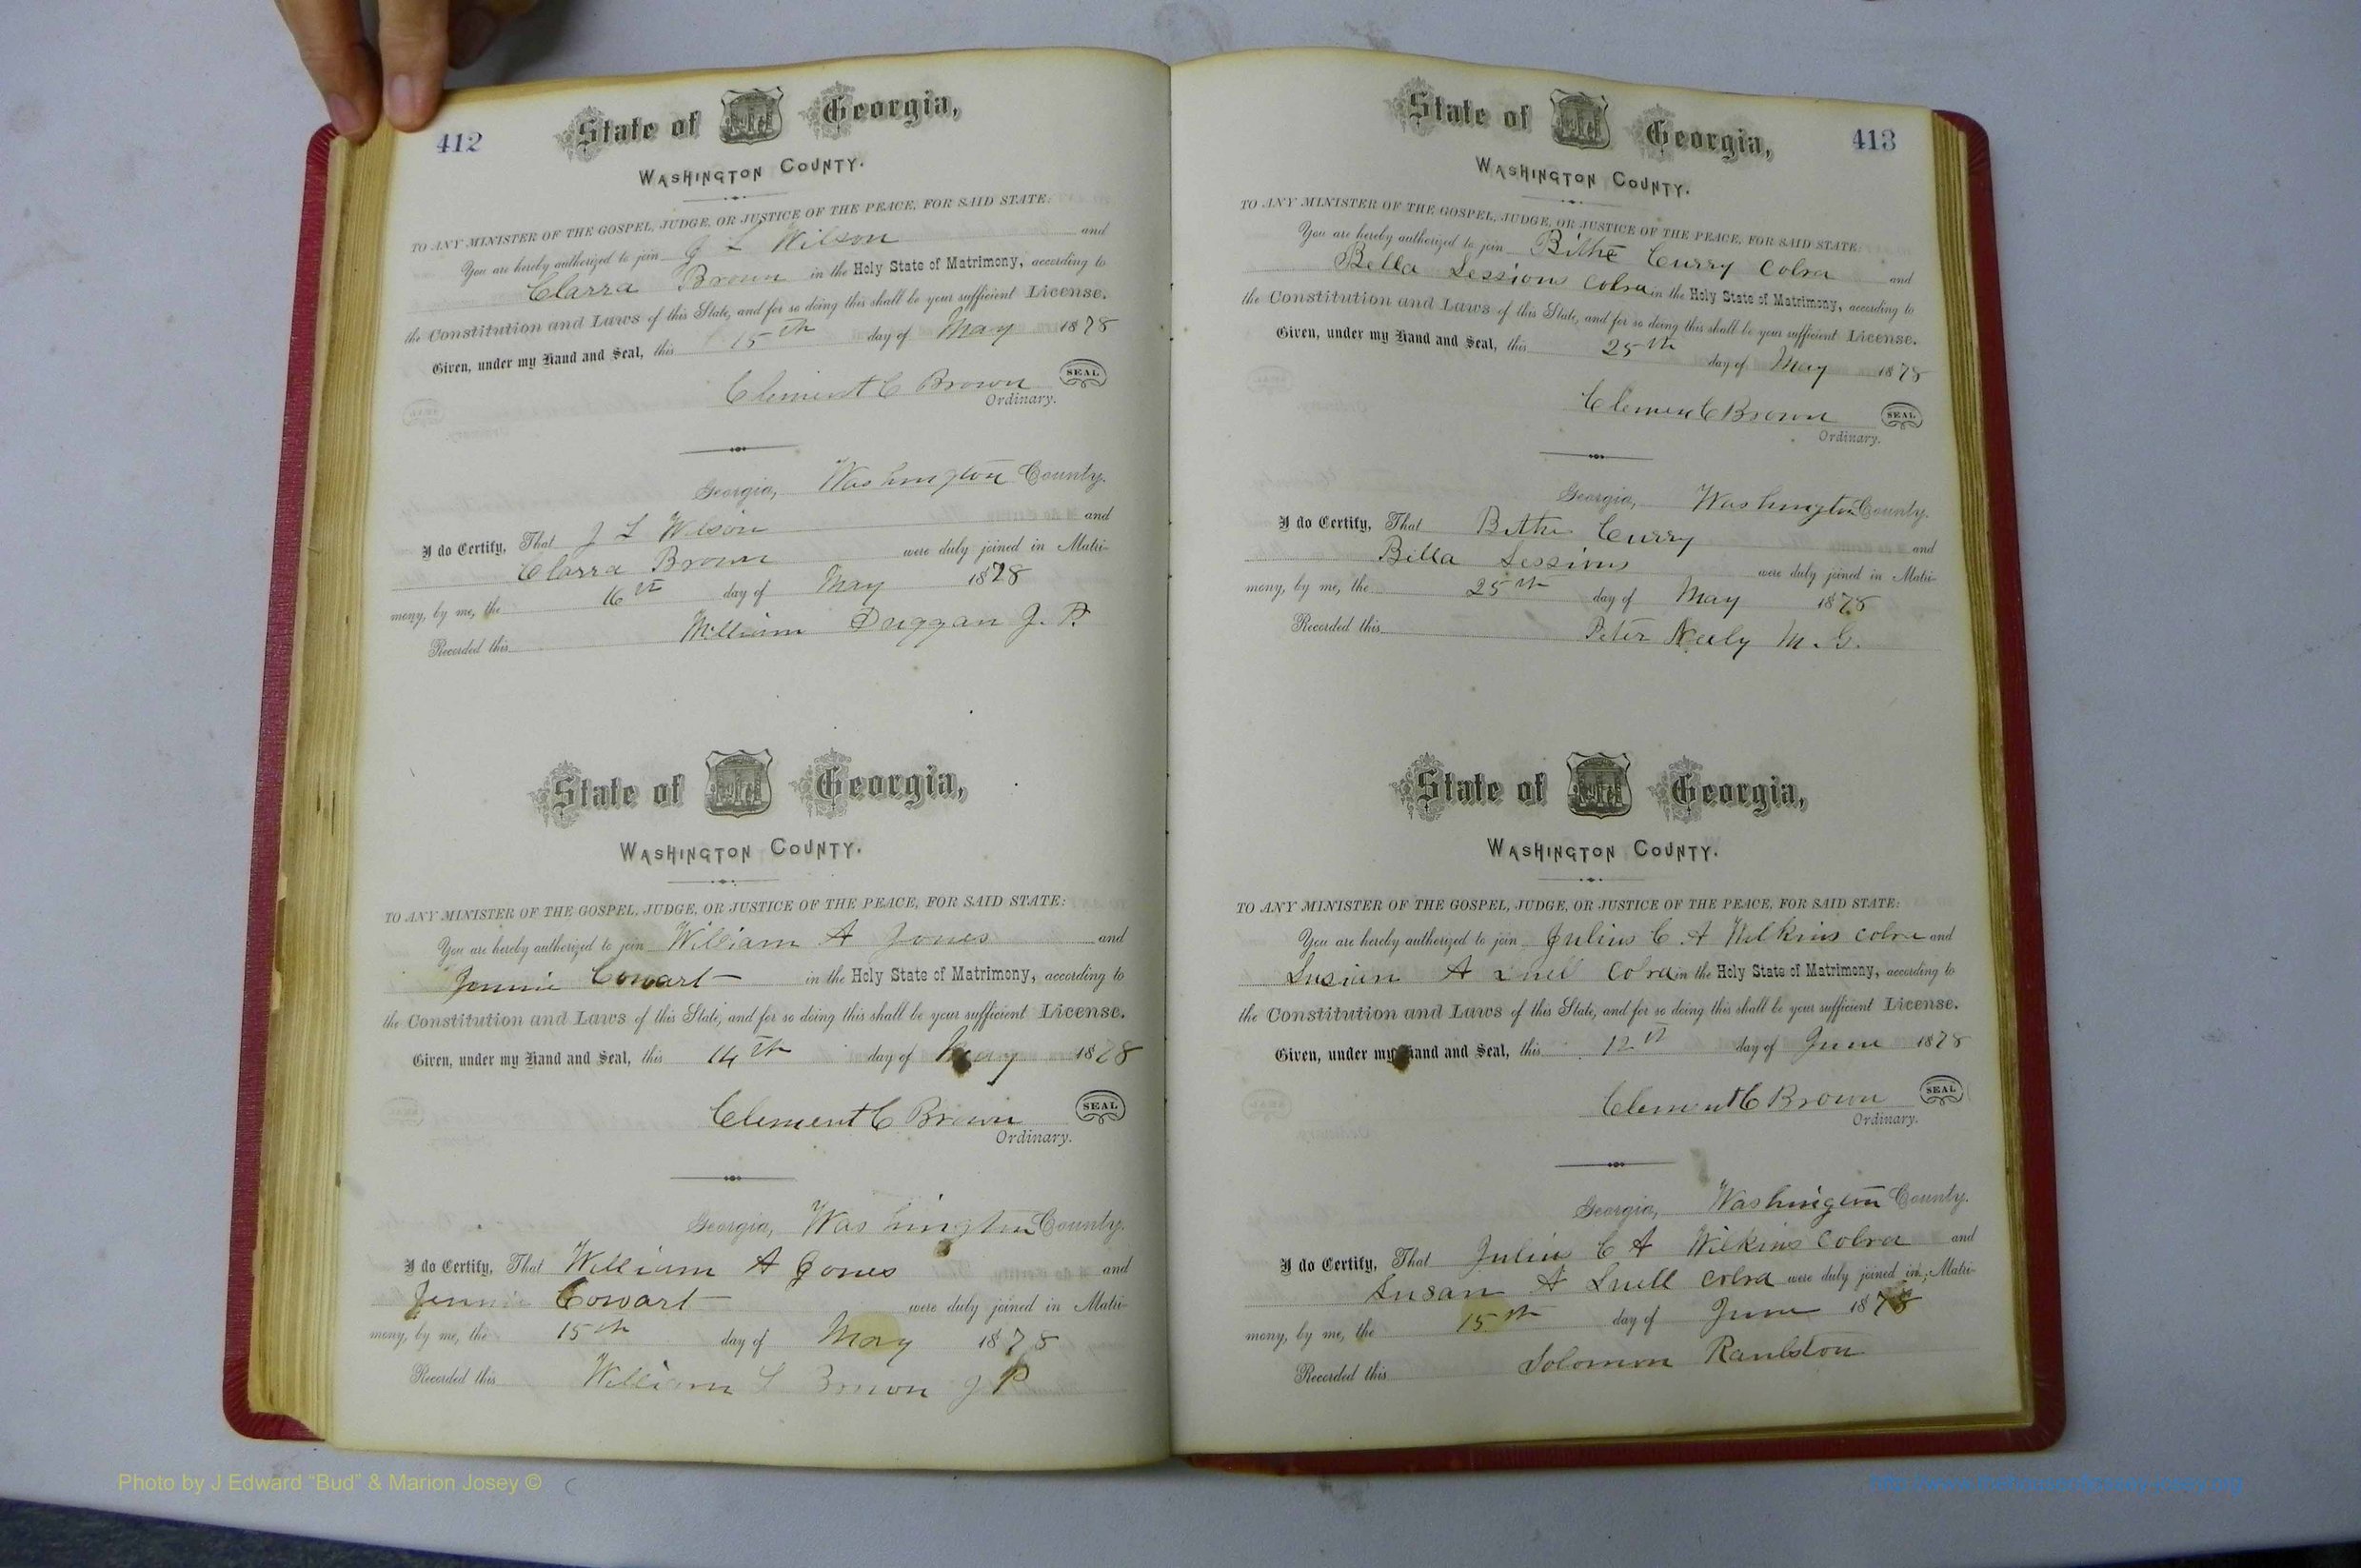 412
State of Georgia,
WASHINGTON COUNTY.
TO ANY MINISTER OF THE GOSPEL, JUDGE, OR JUSTICE OF THE PEACE, FOR SAID STATE:
You are hereby authorized to join J L Wilson and
Clarra Brown in the Holy State of Matrimony, according to
the Constitution and Laws of this State, and for so doing this shall be your sufficient License.
Given, under my Hand and Seal, this 15th day of May 1878
Clement C Brown SEAL
Ordinary.
Georgia, Washington County.
I do Certify, That J L Wilson and
Clarra Brown were duly joined in Matri-
mony, by me, the 16th day of May 1878
Recorded this William Duggan J. P.
State of Georgia,
WASHINGTON COUNTY.
TO ANY MINISTER OF THE GOSPEL, JUDGE, OR JUSTICE OF THE PEACE, FOR SAID STATE:
You are hereby authorized to join William A Jones and
Jennie Cowart in the Holy State of Matrimony, according to
the Constitution and Laws of this State, and for so doing this shall be your sufficient License.
Given, under my Hand and Seal, this 14th day of May 1878
Clement C Brown SEAL
Ordinary.
Georgia, Washington County.
I do Certify, That William A Jones and
Jennie Cowart were duly joined in Matri-
mony, by me, the 15th day of May 1878
Recorded this William L Brown J P
413
State of Georgia,
WASHINGTON COUNTY.
TO ANY MINISTER OF THE GOSPEL, JUDGE, OR JUSTICE OF THE PEACE, FOR SAID STATE:
You are hereby authorized to join Bithe Curry Colrd and
Bella Sessions Colrd in the Holy State of Matrimony, according to
the Constitution and Laws of this State, and for so doing this shall be your sufficient License.
Given, under my Hand and Seal, this 25th day of May 1878
Clemen C Brown SEAL
Ordinary.
Georgia, Washington County.
I do Certify, That Bithe Curry and
Bella Sessions were duly joined in Matri-
mony, by me, the 25th day of May 1878
Recorded this Peter Neely M. G.
State of Georgia,
WASHINGTON COUNTY.
TO ANY MINISTER OF THE GOSPEL, JUDGE, OR JUSTICE OF THE PEACE, FOR SAID STATE:
You are hereby authorized to join Julius C A Wilkins Colrd and
A Colrd in the Holy State of Matrimony, according to
the Constitution and Laws of this State, and for so doing this shall be your sufficient License.
Given, under my Hand and Seal, this 12th day of June 1878
Clement C Brown SEAL
Ordinary.
Georgia, Washington County.
I do Certify, That Julius C A Wilkins Colrd and
Susan A Snell Colrd were duly joined in Matri-
mony, by me, the 15th day of June 1878
Recorded this Solomon Raulston
Photo by J Edward “Bud” & Marion Josey ©